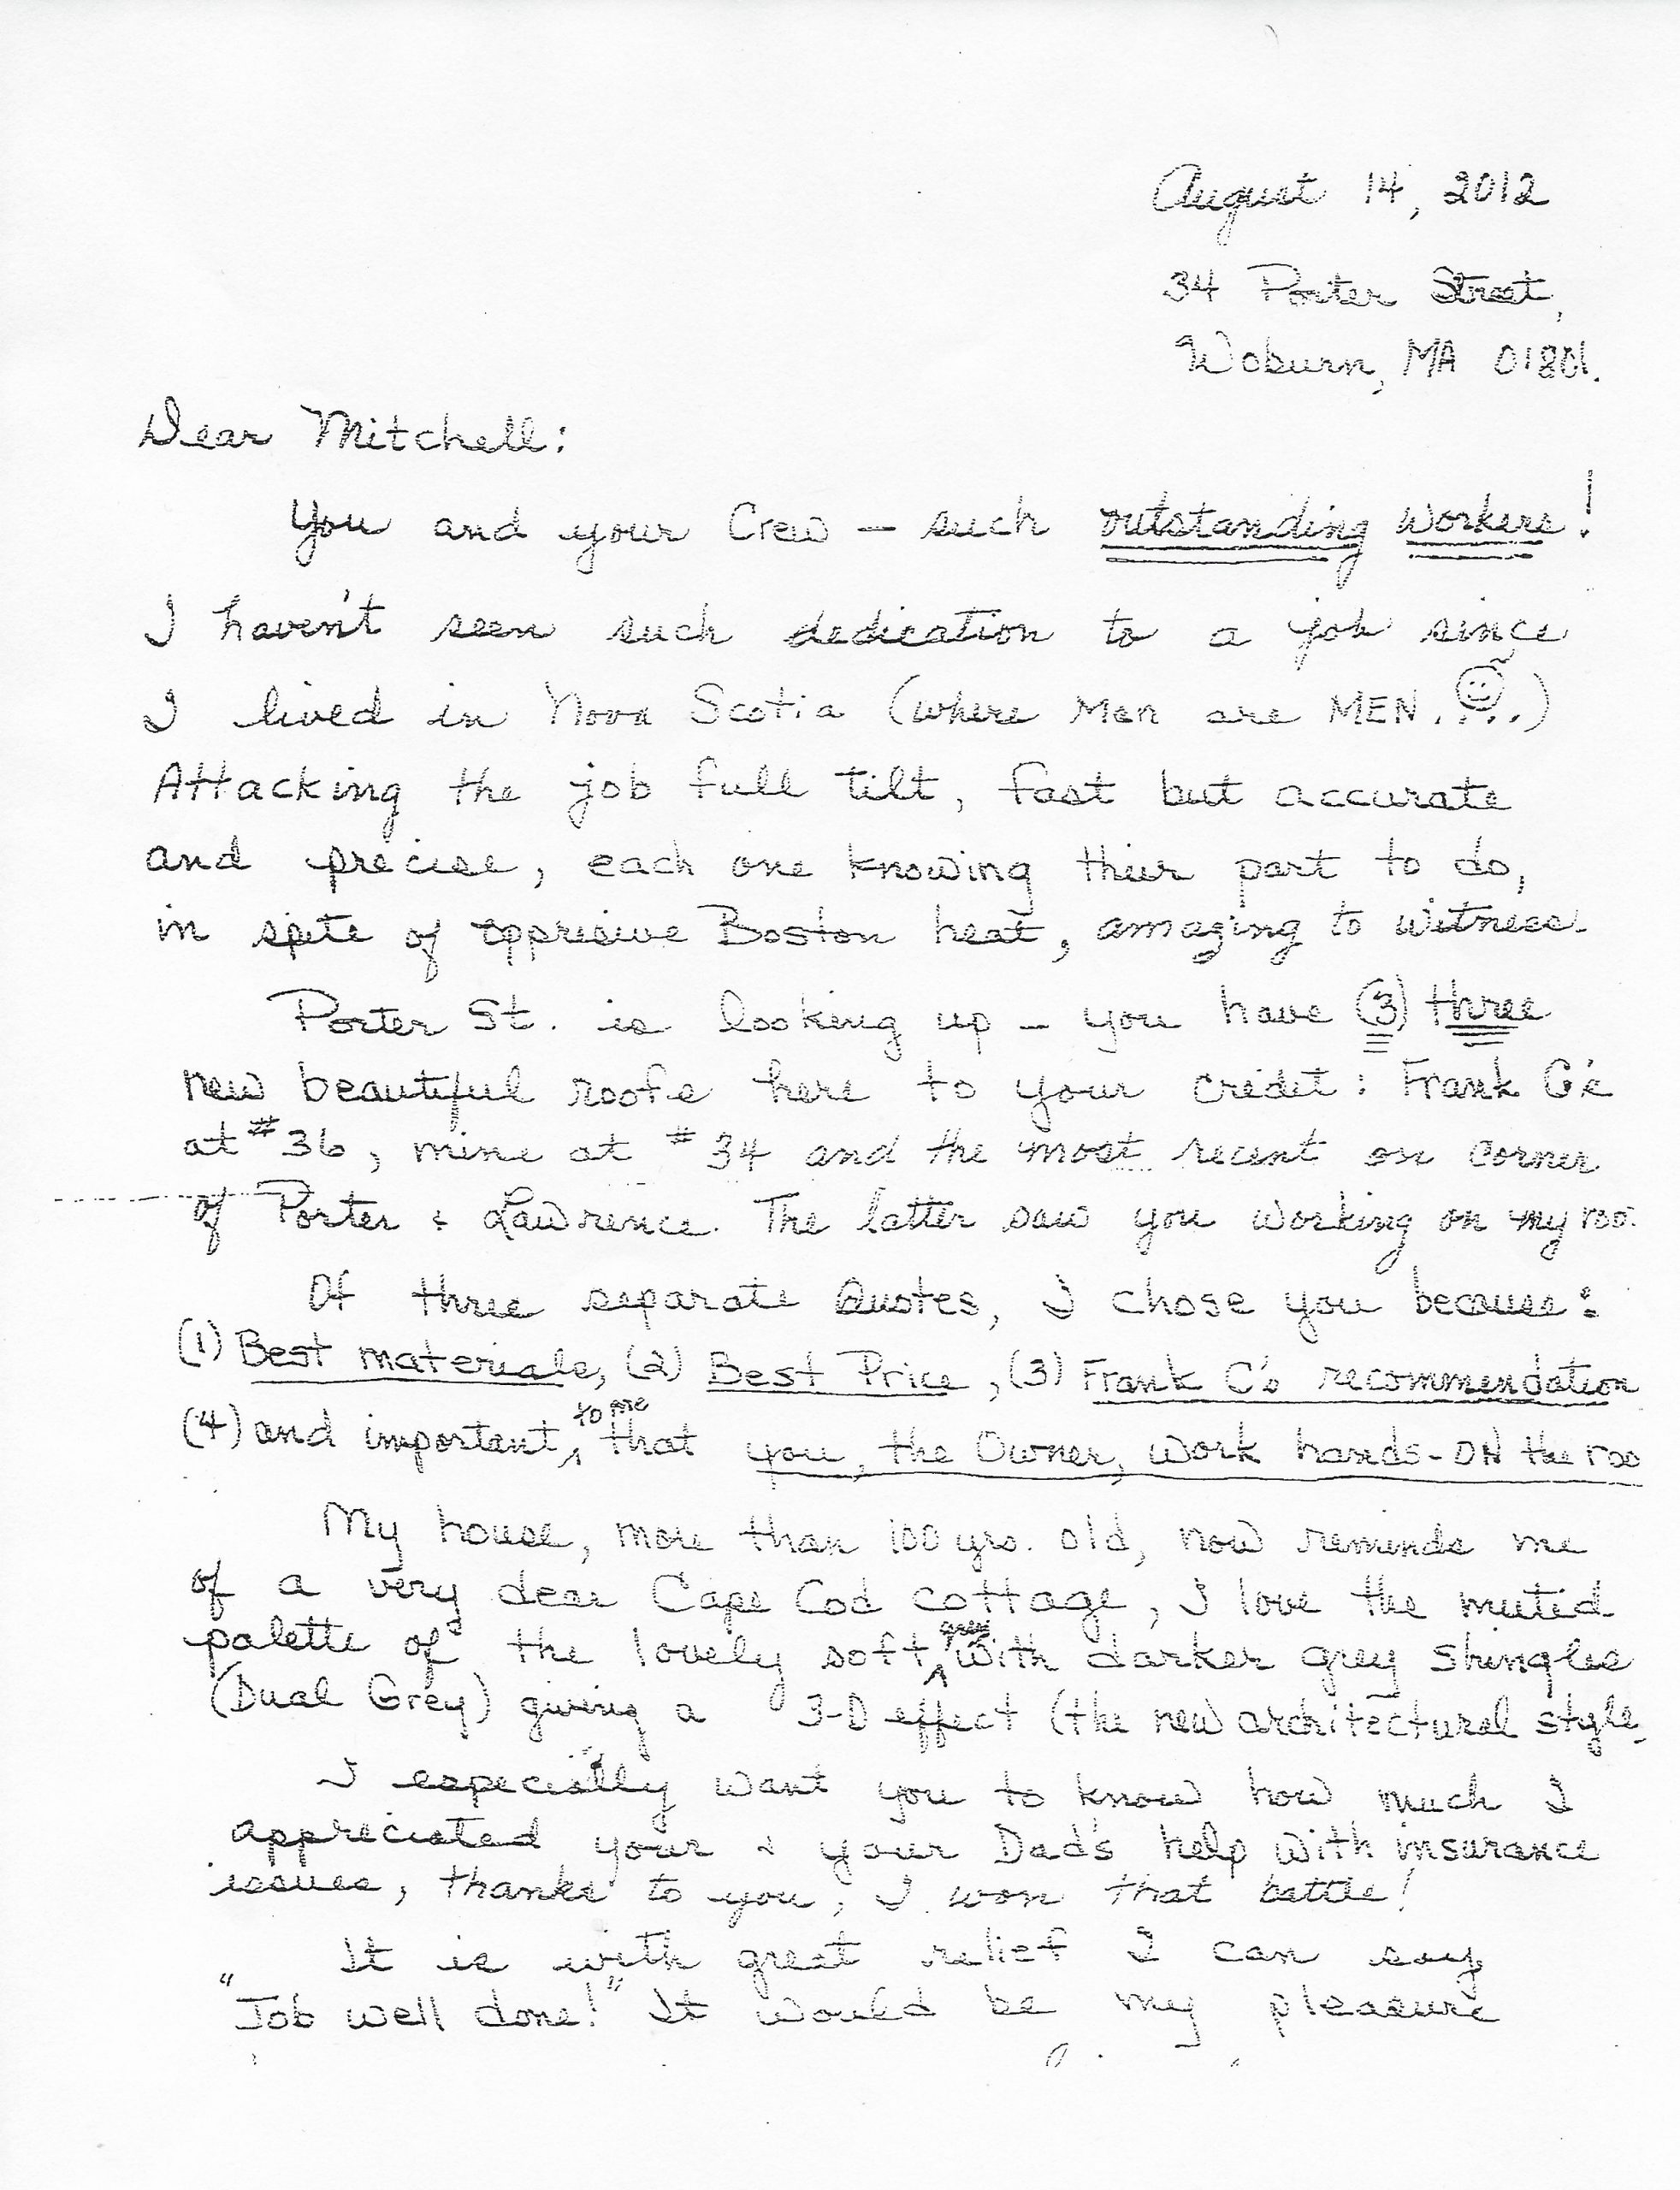 August 14, 2012
34 Porter Street,
Woburn, MA 01801.
Dear Mitchell:
You and your Crew – such outstanding workers!
I haven't seen such dedication to a job since
I lived in Nova Scotia (where Men are MEN....)
Attacking the job full tilt, fast but accurate
and precise, each one knowing thier part to do,
in spite of oppresive Boston heat, amazing to witness.
Porter St. is looking up – you have (3) three
new beautiful roofs here to your credit: Frank C's
at #36, mine at #34 and the most recent on corner
of Porter & Lawrence. The latter saw you working on my roo
Of three separate Quotes, I chose you because:
(1) Best materials, (2) Best Price, (3) Frank C's recommendation
(4) and important, to me that you, the Owner, work hands-ON the roo
My house, more than 100 yrs. old, now reminds me
of a very dear Cape Cod cottage, I love the muted
palette of the lovely soft grey with darker grey shingles
(Dual Grey) giving a 3-D effect (the new architectural style
I especially want you to know how much I
appreciated your & your Dad's help with insurance
issues, thanks to you, I won that battle!
It is with great relief I can say
"Job well done!" It would be my pleasure